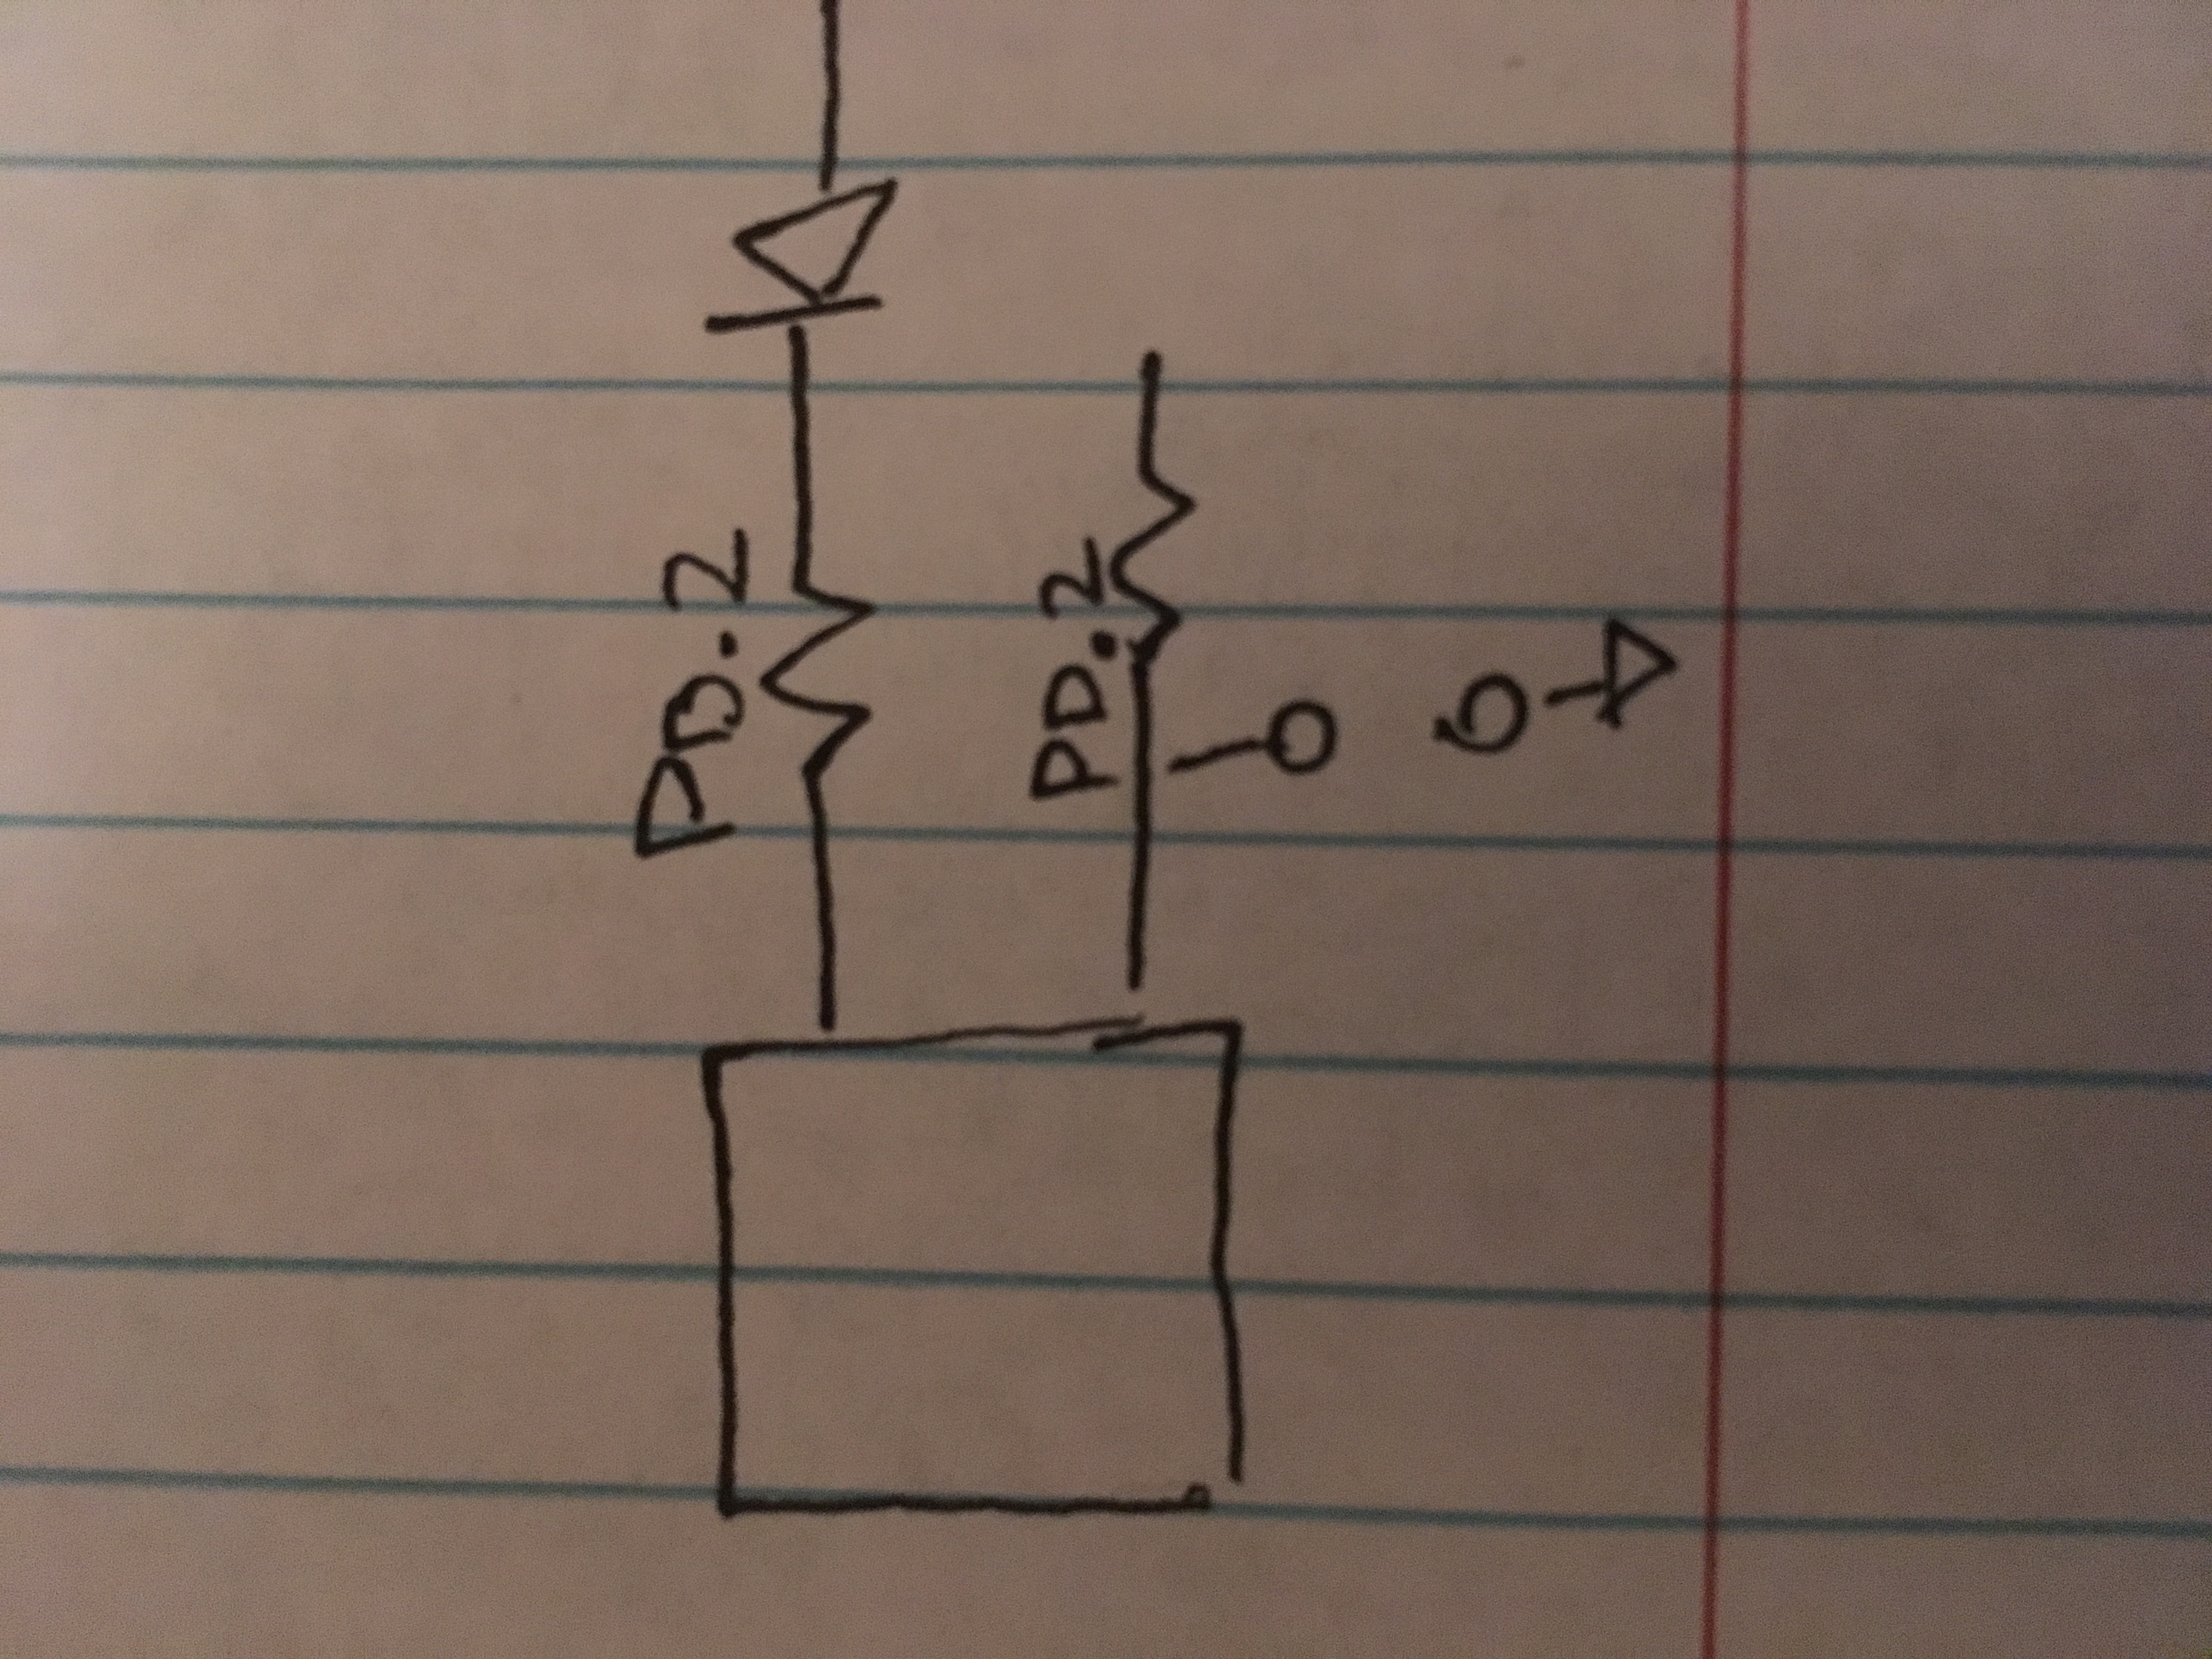 PD.2
PD.2